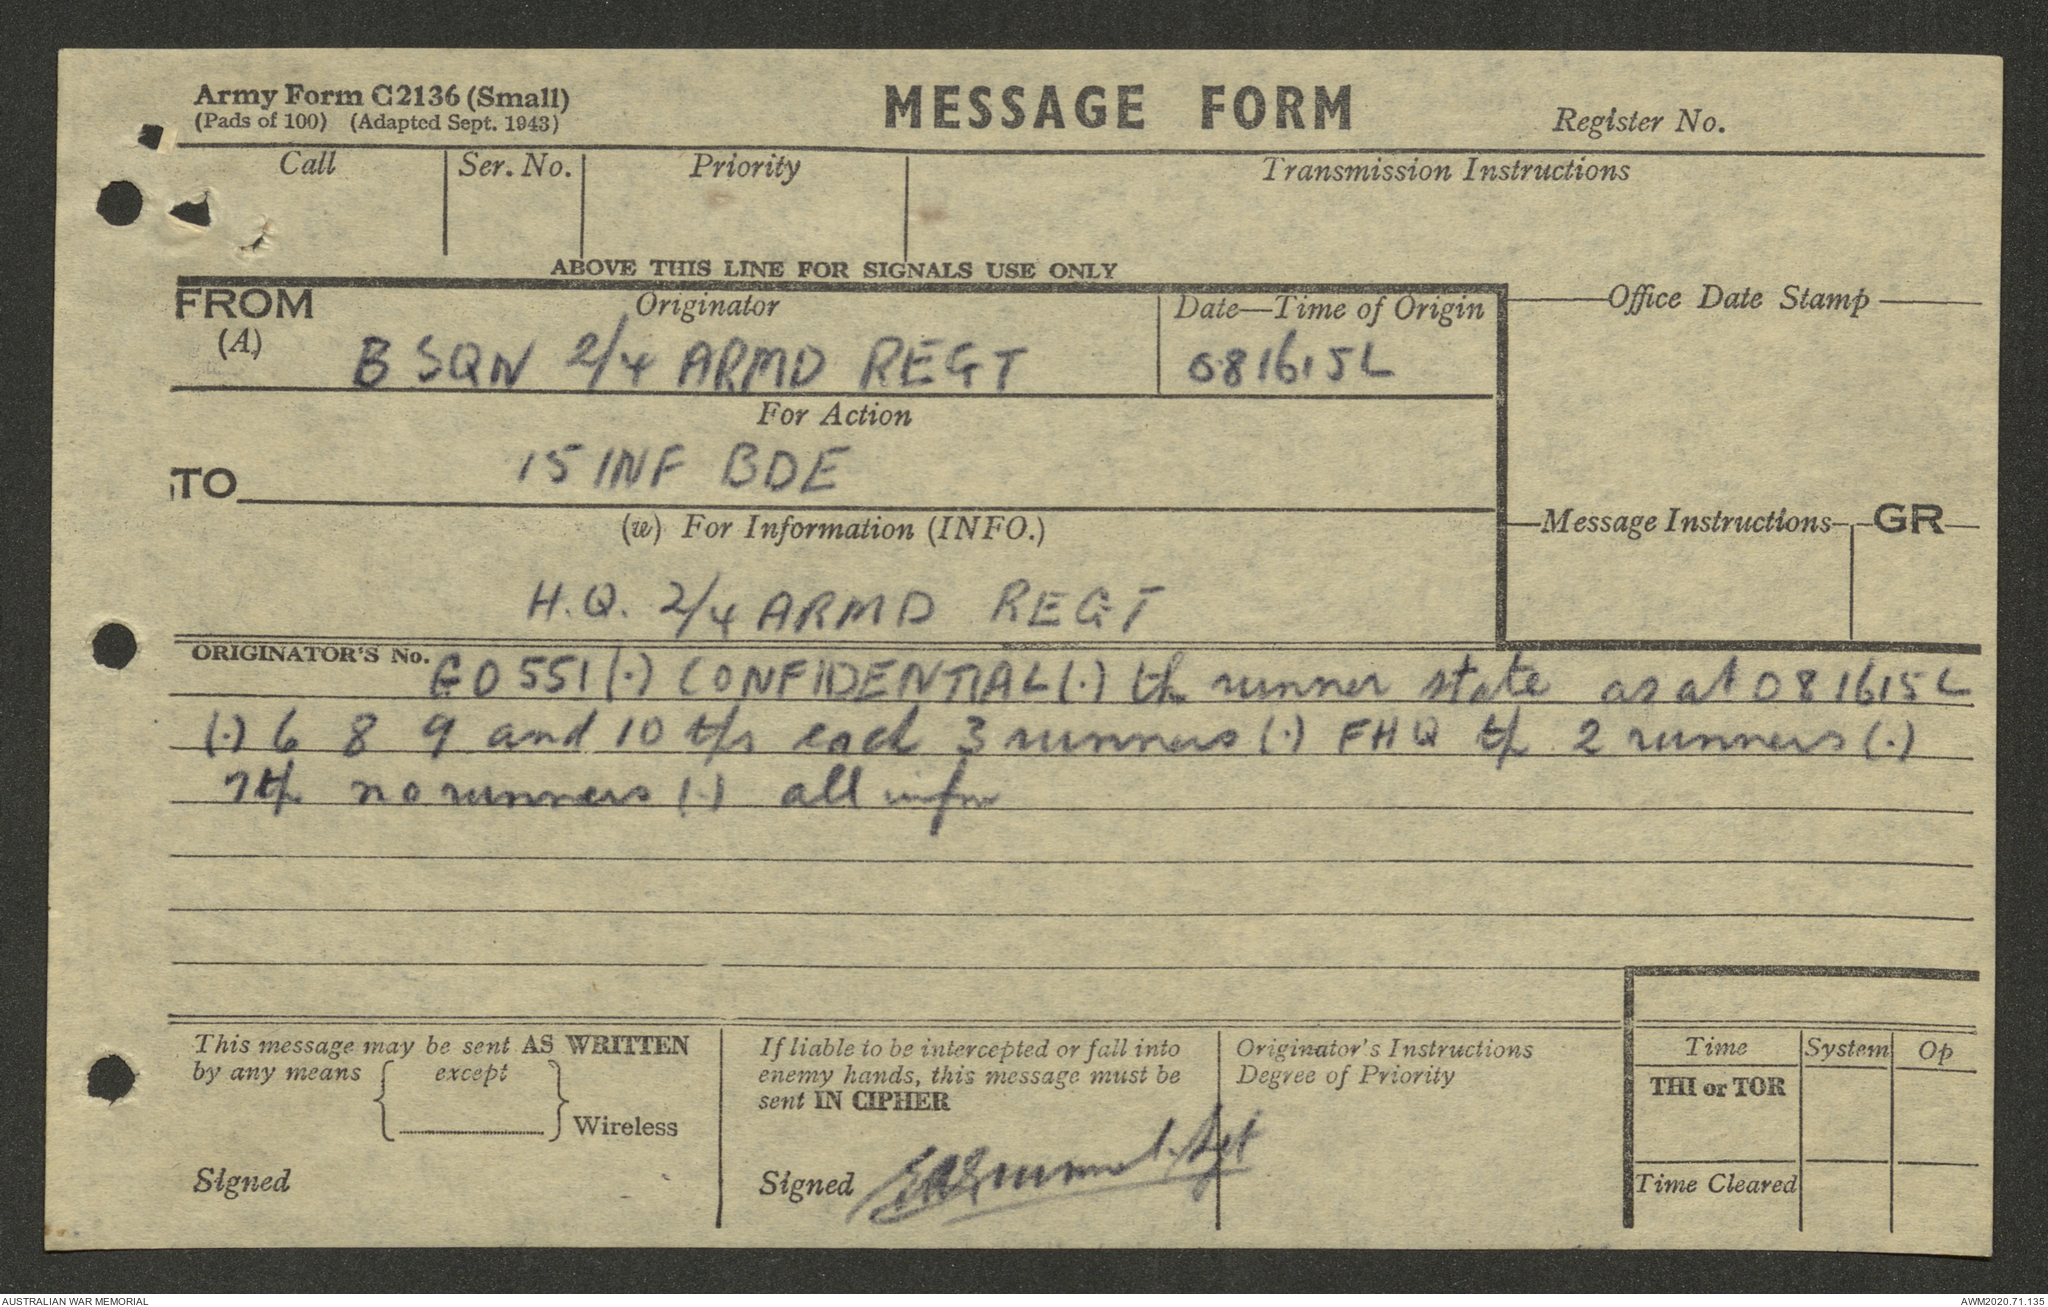 Army Form C2136 (Small)
(Pads of 100) (Adapted Sept. 1943)
MESSAGE FORM
Register No.
Call
Ser. No.
Priority
Transmission Instructions
ABOVE THIS LINE FOR SIGNALS USE ONLY
FROM
(A)
Originator
Date—Time of Origin
Office Date Stamp
B SQN 2/4 ARMD REGT
081615L
For Action
TO
15 INF BDE
(w) For Information (INFO.)
Message Instructions
GR
H.Q. 2/4 ARMD REGT
ORIGINATOR'S No.
GO551 (.) CONFIDENTIAL (.) tk runner state as at 081615L
(.) 6 8 9 and 10 tps each 3 runners (.) FHQ tp 2 runners (.)
7 tp no runners (.) all infm
This message may be sent AS WRITTEN
by any means
except
Wireless
Signed
If liable to be intercepted or fall into
enemy hands, this message must be
sent IN CIPHER
Signed
Originator's Instructions
Degree of Priority
Time
System
Op
THI or TOR
Time Cleared
AUSTRALIAN WAR MEMORIAL
AWM2020.71.135